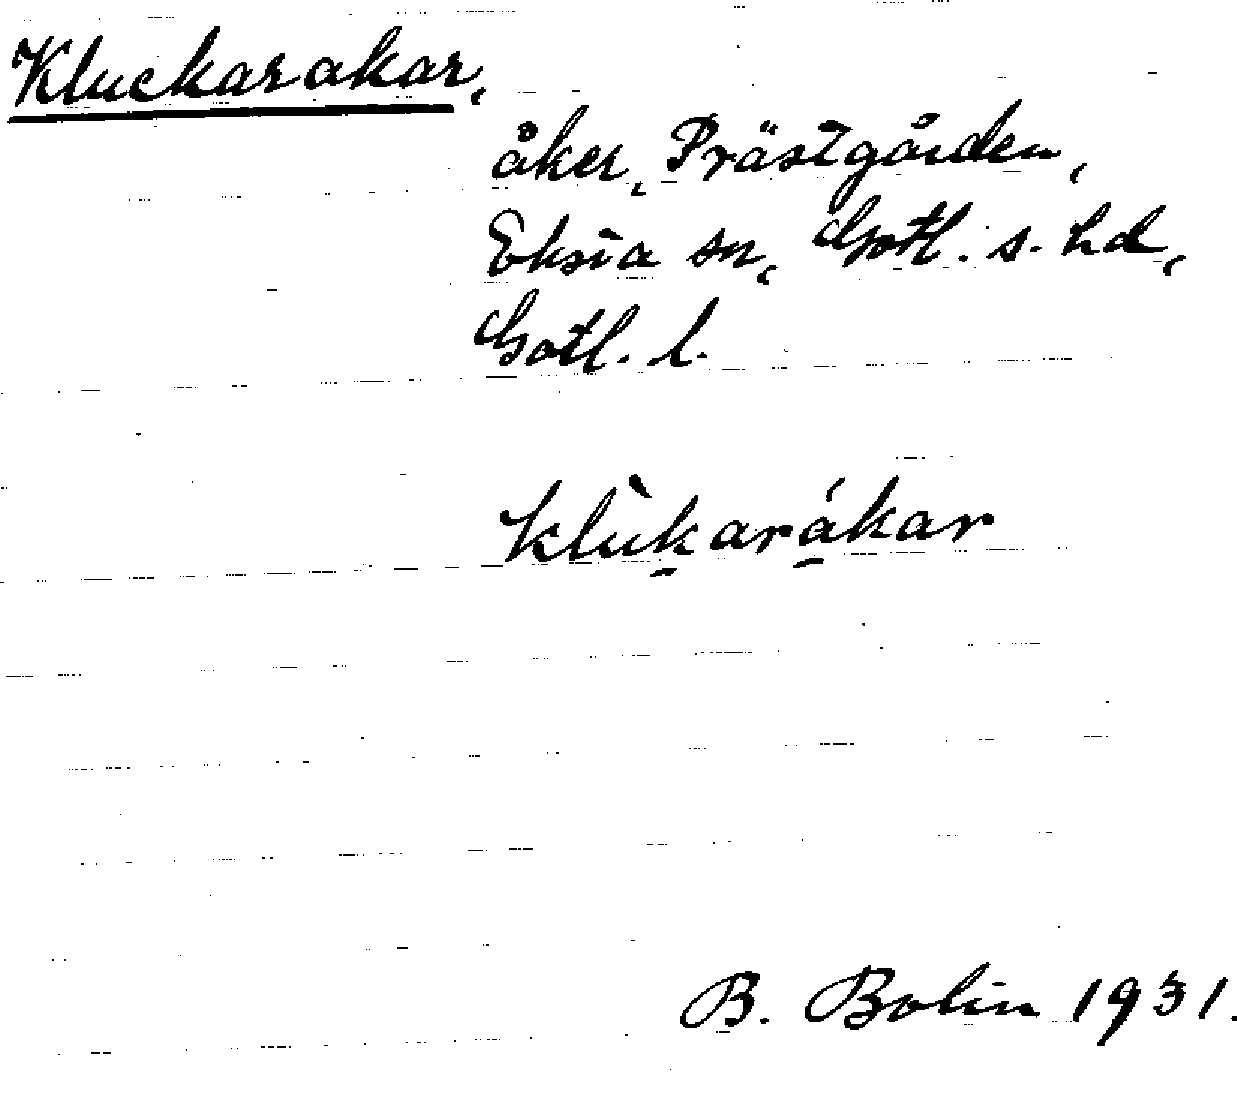 Kluckarakar,
åker, Prästgården,
Eksta sn, Gotl. s. hd,
Gotl. l.
klùḵará̱kar
B. Bolin 1931.